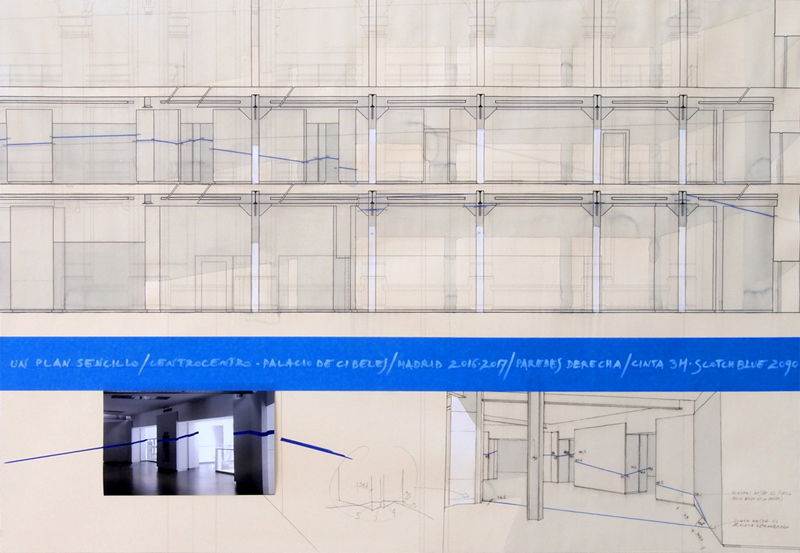 UN PLAN SENCILLO/CENTROCENTRO - PALACIO DE CIBELES/MADRID 2016-2017/PAREDES DERECHA/CINTA 3M-SCOTCHBLUE 2090